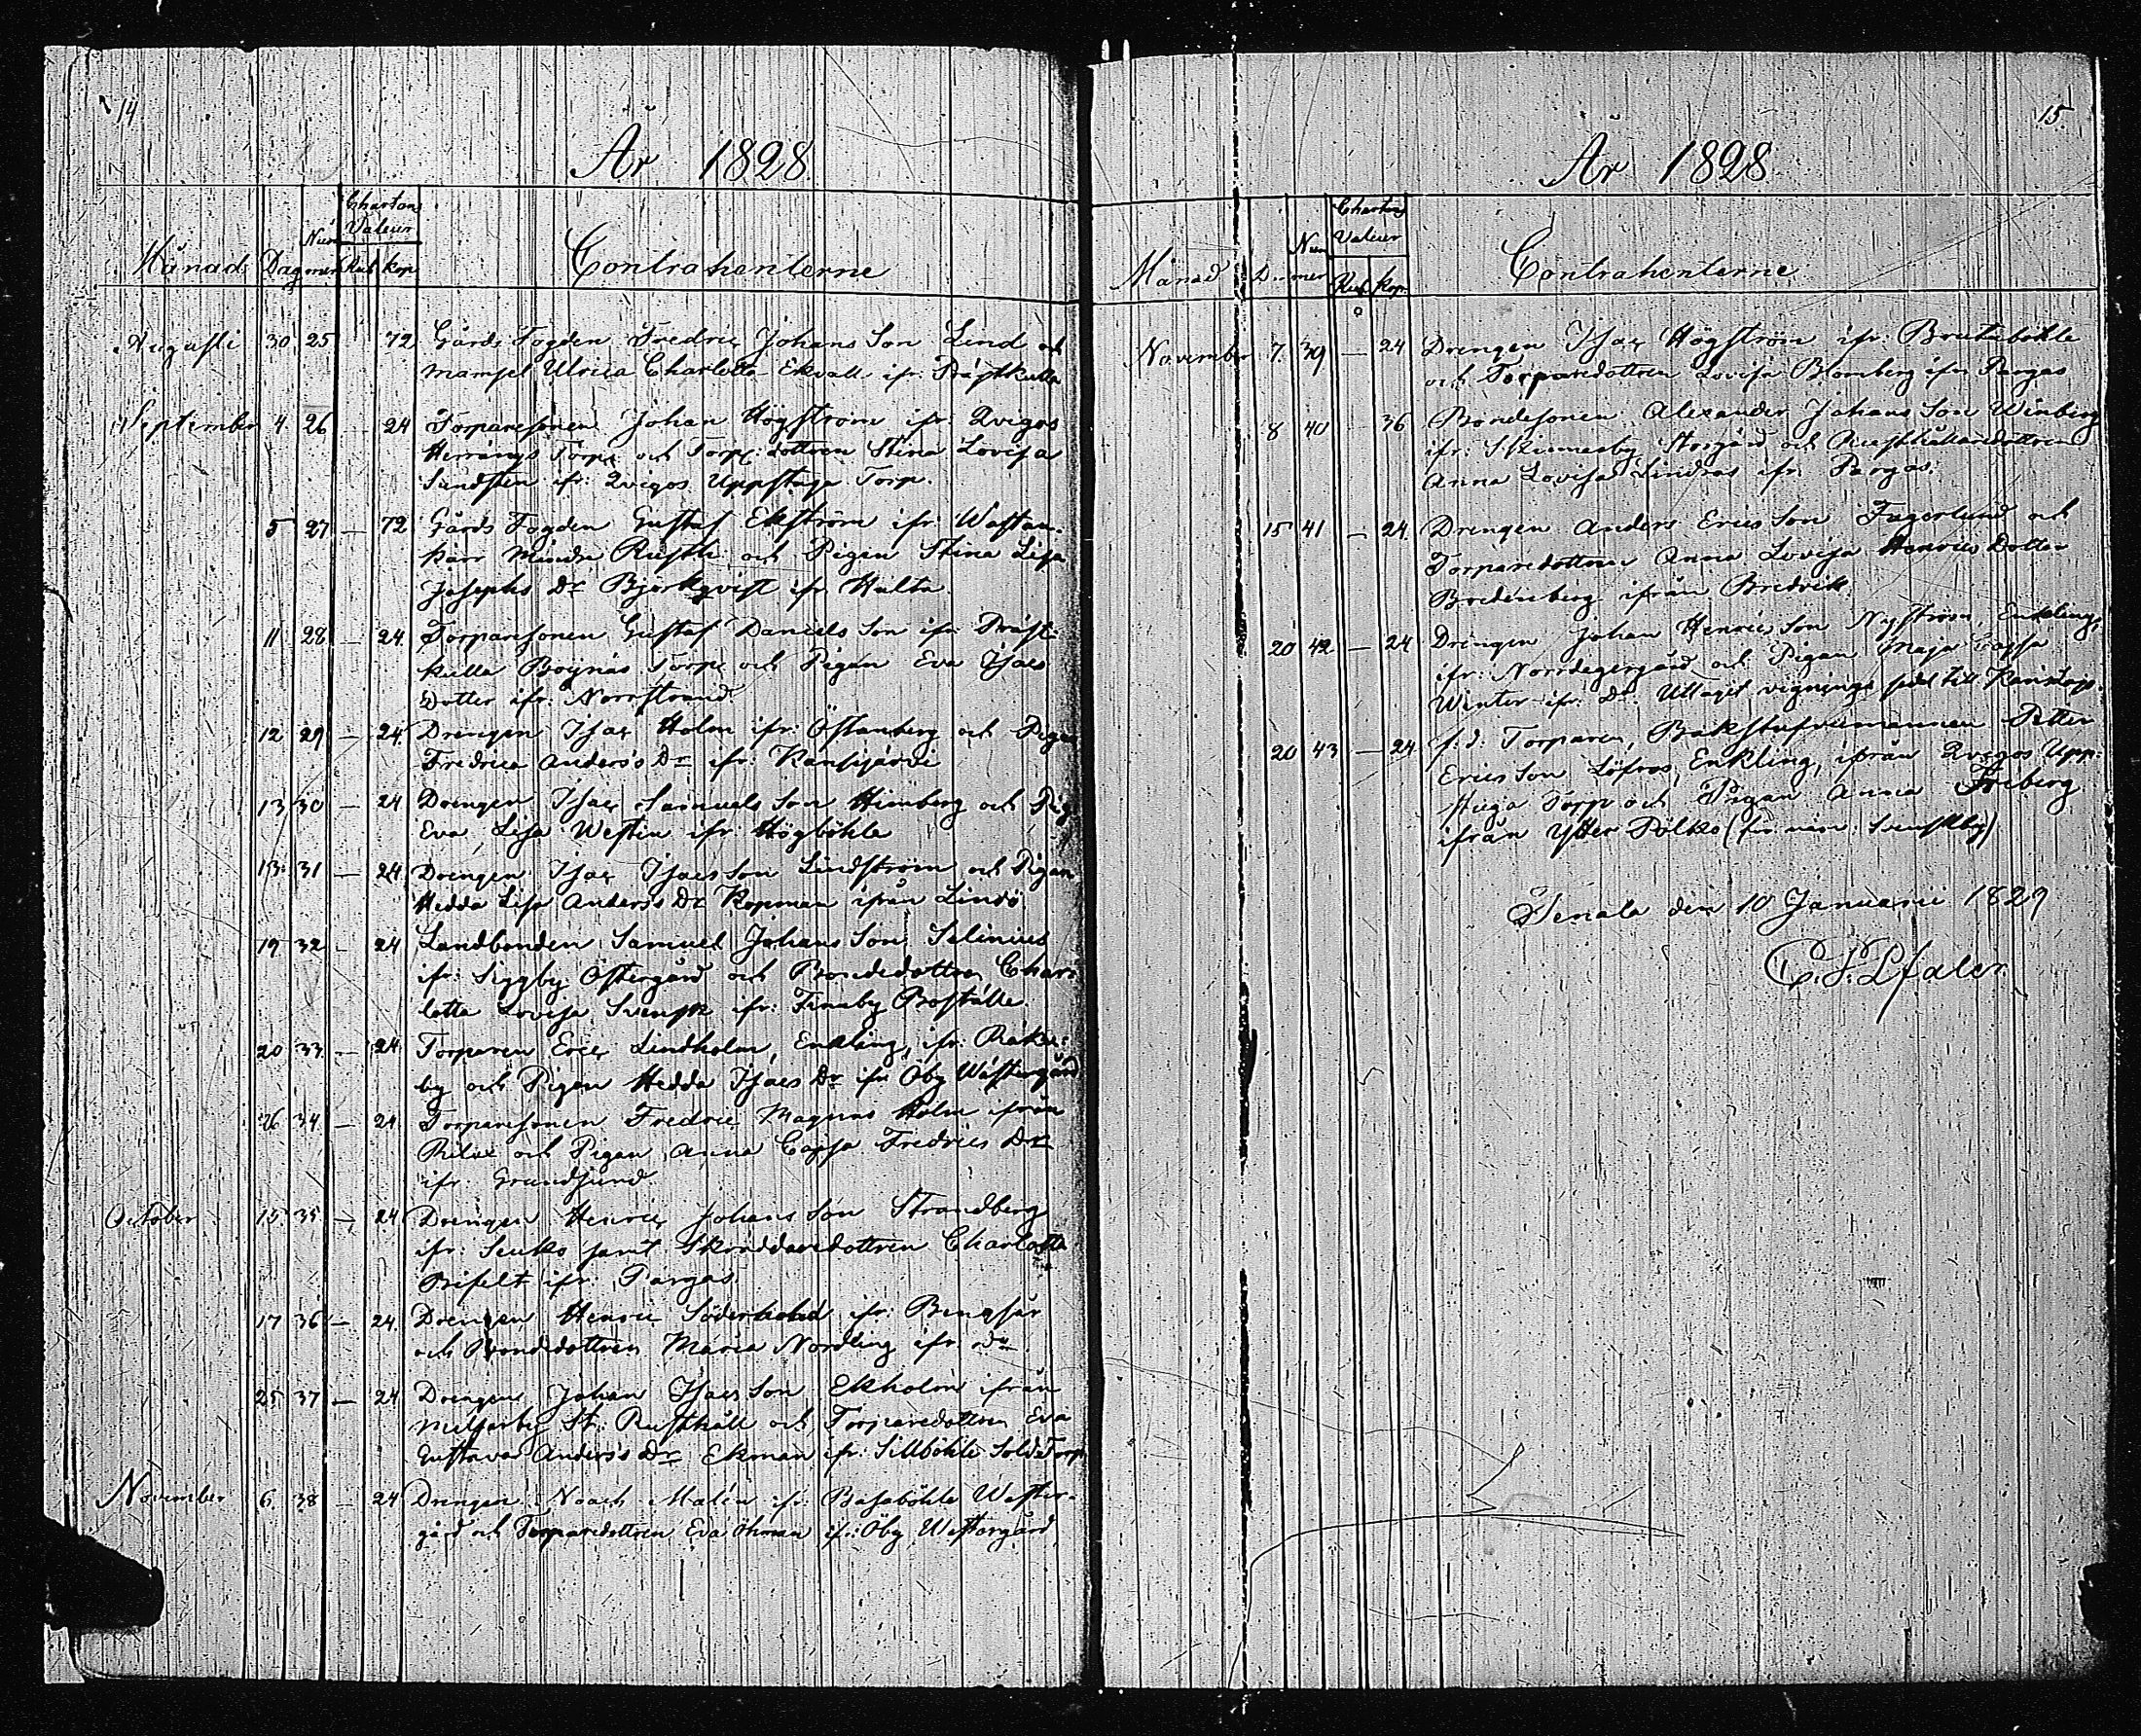 14
År 1828
Månad Dag Nummer Chartans Valeur Rub. kop. Contrahenterne
Augusti 30 25 72 Gårds Fogden Fredric Johans Son Lind och
Mamsel Ulrica Charlotta Ekvall ifr: Präskulla
September 4 26 — 24 Torparesonen Johan Högström ifr: Qvigos
Herrängs Torp och Torp: dottren Stina Lovisa
Sundsten ifr: Qvigos Uppstuga Torp.
5 27 — 72 Gårds Fogden Gustaf Ekström ifr: Westan-
kärr Mindre Rusth: och Pigan Stina Lisa
Josephs Dr Björkqvist ifr Hulta
11 28 — 24 Torparesonen Gustaf Daniels Son ifr: Präst-
kulla Bognäs Torp och Pigan Eva Isacs
Dotter ifr: Norrstrand.
12 29 — 24 Drengen Isac Holm ifr: Östanberg och Pigan
Fredrica Anders's Dr ifr: Kansjärvi
13 30 — 24 Drengen Isac Samuels Son Himberg och Pig
Eva Lisa Westin ifr Högböhle
13 31 — 24 Drengen Isac Isacs Son Lindström och Pigan
Hedda Lisa Anders's Dr Kopman ifrån Lindö
19 32 - 24 Landbonden Samuel Johans Son Selinius
ifr: Siggby Östergård och Bondedottren Char-
lotta Lovisa Svensk ifr: Finnby Boställe
20 33 — 24 Torparen Eric Lindholm, Enkling, ifr:
by och Pigan Hedda Isacs Dr ifr Öby Westergård
26 34 — 24 Torparesonen Fredric Magnus Holm ifrån
Rilax och Pigan Anna Cajsa Fredrics Dr
ifr: Grundsund
October 15 35 — 24 Drengen Henric Johans Son Strandberg
ifr: samt Skreddaredottren Charlotta
ifr: Pargas
17 36 — 24 Drengen Henric Söderholm ifr: Bengsår
och Bondedottren Maria Nordling ifr do
25 37 — 24 Drengen Johan Isacs Son Ekholm ifrån
St: Rusthåll och Torparedottren Eva
Gustava Anders's Dr Ekman ifr: Sillböhle Sold: Torp
November 6 38 24 Drengen Noach Malén ifr: Basaböhle Wester-
gård och Torparedottren Eva Öhman ifr: Öby Westergård
15
År 1828
Månad D. Nummer Chartans Valeur Rub. kop. Contrahenterne
November 7 39 — 24 Drengen Isac Högström ifr: Brutuböhle
och Torparedottren Lovisa Blomberg ifr Pargas
8 40 — 36 Bondesonen Alexander Johans Son Winberg
ifr: Skinnarby Storgård och Rusthållaredottren
Anna Lovisa Lindros ifr: Pargas.
15 41 — 24 Drengen Anders Erics Son Fagerlund och
Torparedottren Anna Lovisa Henrics Dotter
Bredenberg ifrån Bredvik
20 42 — 24 Drengen Johan Henrics Son Nyström, Enkling,
ifr: Norrdegergård och Pigan Maja Cajsa
Winter ifr: Do. Uttagit vignings sedel till
20 43 — 24 f. d: Torparen, Backstufvumannen Petter
Erics Son Löfros, Enkling, ifrån Qvigos Upp-
stuga Torp och Pigan Anna Friberg
ifrån Ytter Pölkö (för när: Svenskby)
Tenala den 10 Januarii 1829